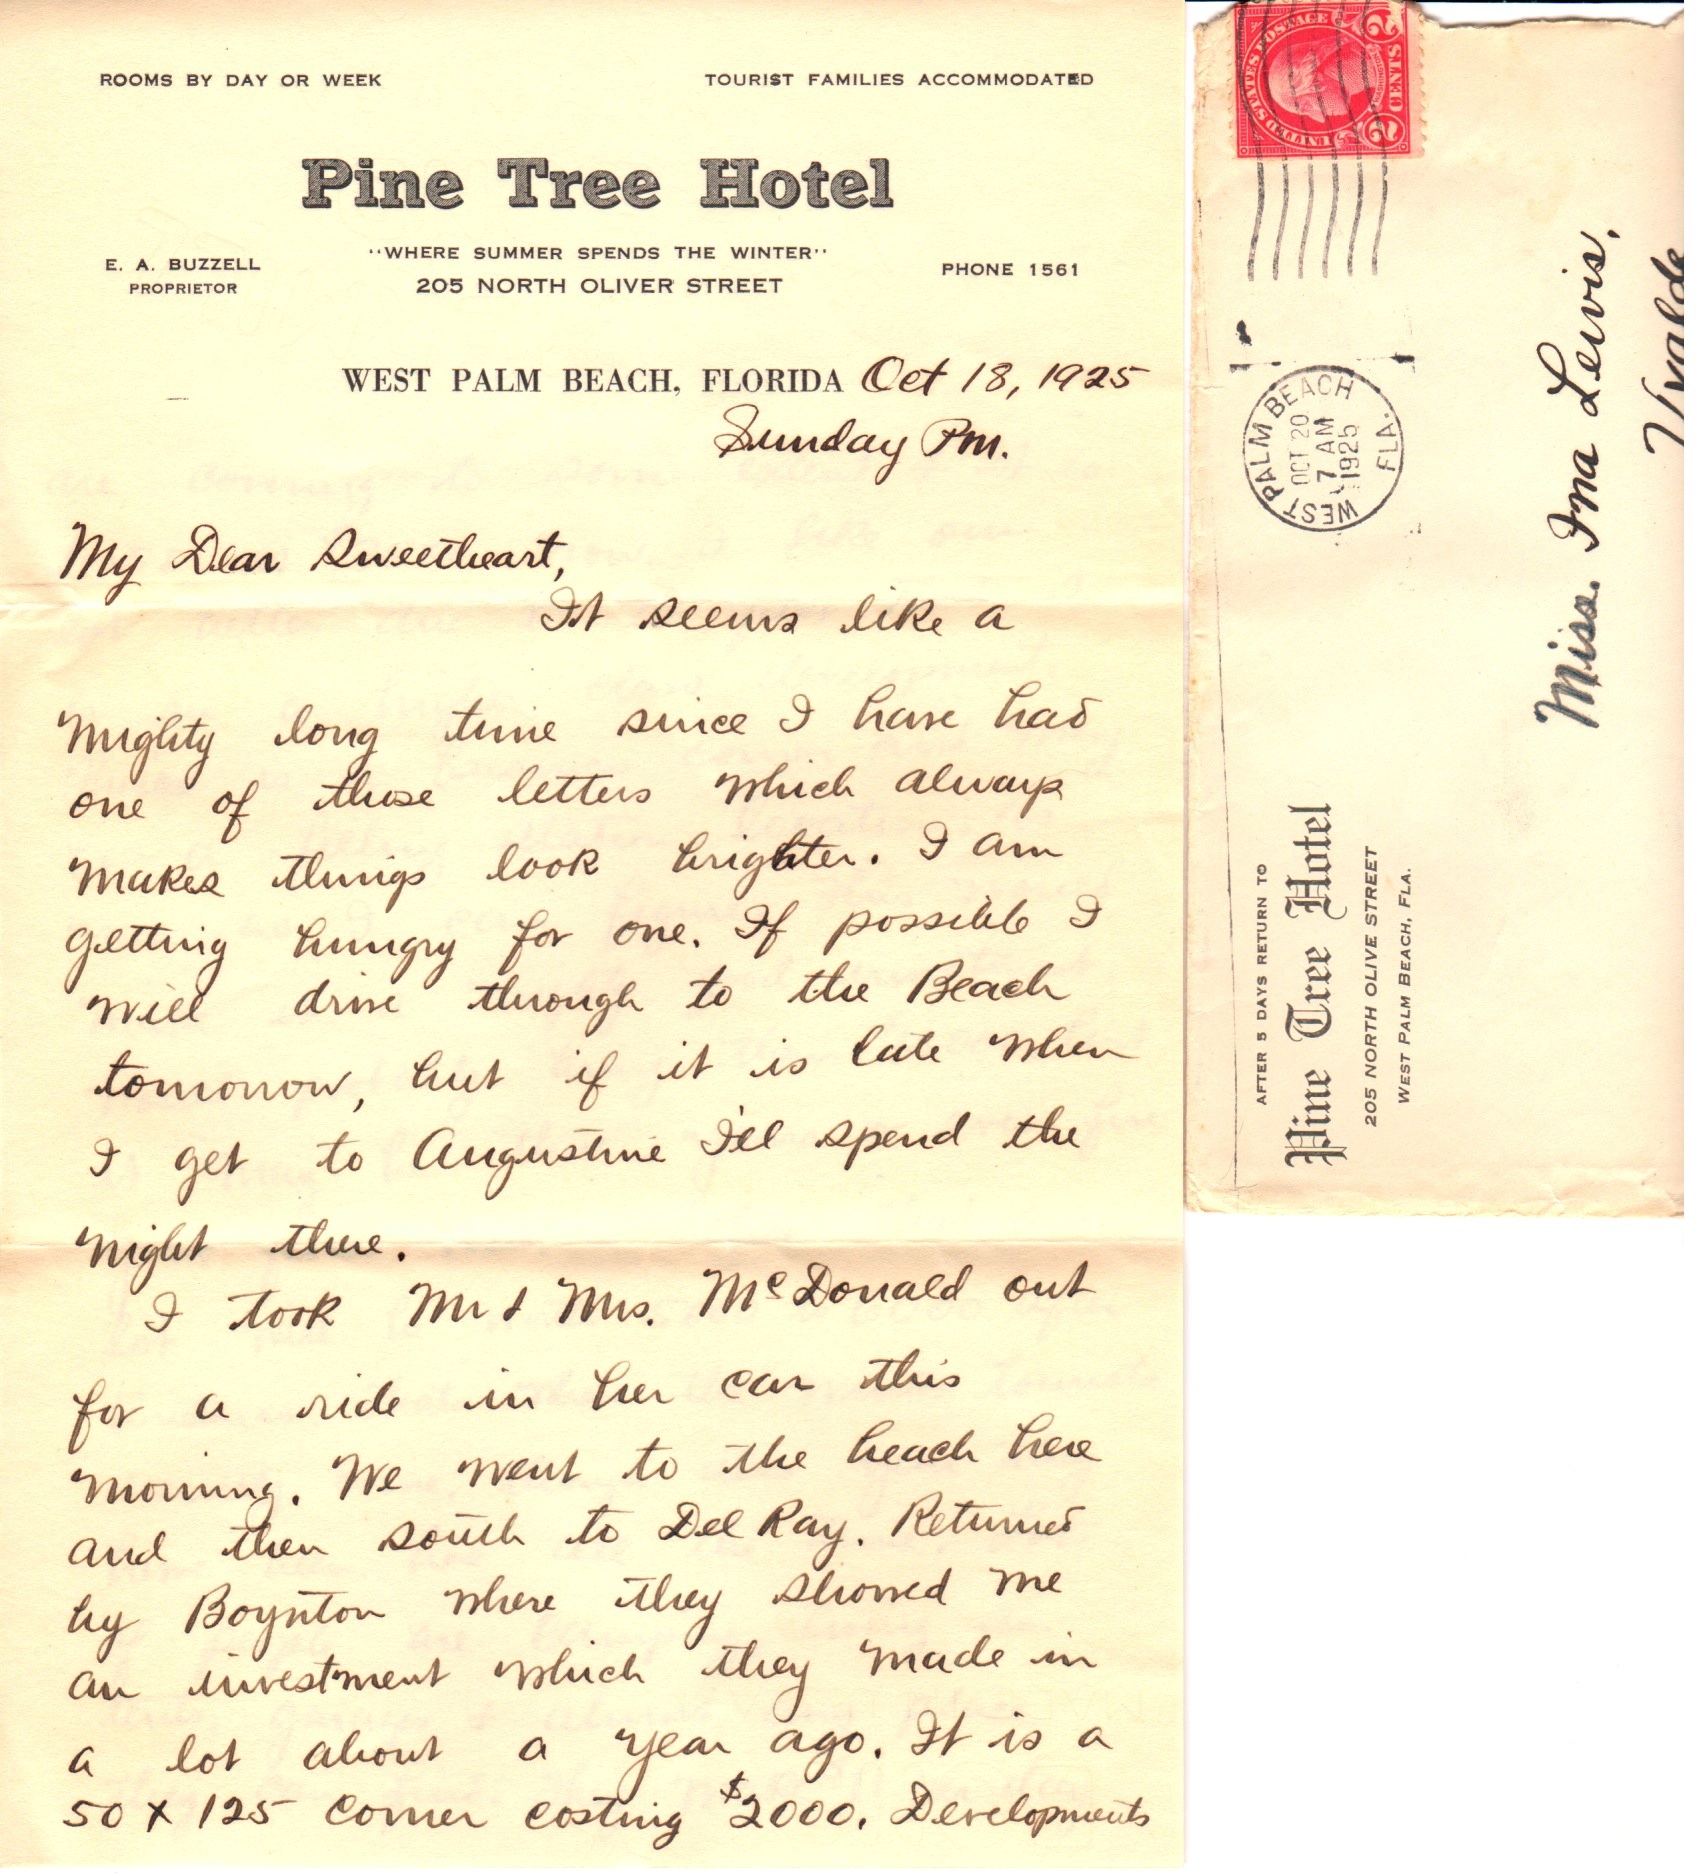 ROOMS BY DAY OR WEEK
TOURIST FAMILIES ACCOMMODATED
Pine Tree Hotel
"WHERE SUMMER SPENDS THE WINTER"
E. A. BUZZELL
PROPRIETOR
205 NORTH OLIVER STREET
PHONE 1561
WEST PALM BEACH, FLORIDA Oct 18, 1925
Sunday Pm.
My Dear Sweetheart,
It seems like a
mighty long time since I have had
one of those letters which always
makes things look brighter. I am
getting hungry for one. If possible I
will drive through to the Beach
tomorrow, but if it is late when
I get to Augustine I'll spend the
night there.
I took Mr & Mrs. McDonald out
for a ride in her car this
morning. We went to the beach here
and then south to Del Ray. Returned
by Boynton where they showed me
an investment which they made in
a lot about a year ago. It is a
50 x 125 corner costing $2000. Developments
UNITED STATES POSTAGE
2 CENTS 2
WASHINGTON
WEST PALM BEACH
OCT 20
7 AM
1925
FLA.
Miss. Ina Lewis,
AFTER 5 DAYS RETURN TO
Pine Tree Hotel
205 NORTH OLIVE STREET
WEST PALM BEACH, FLA.